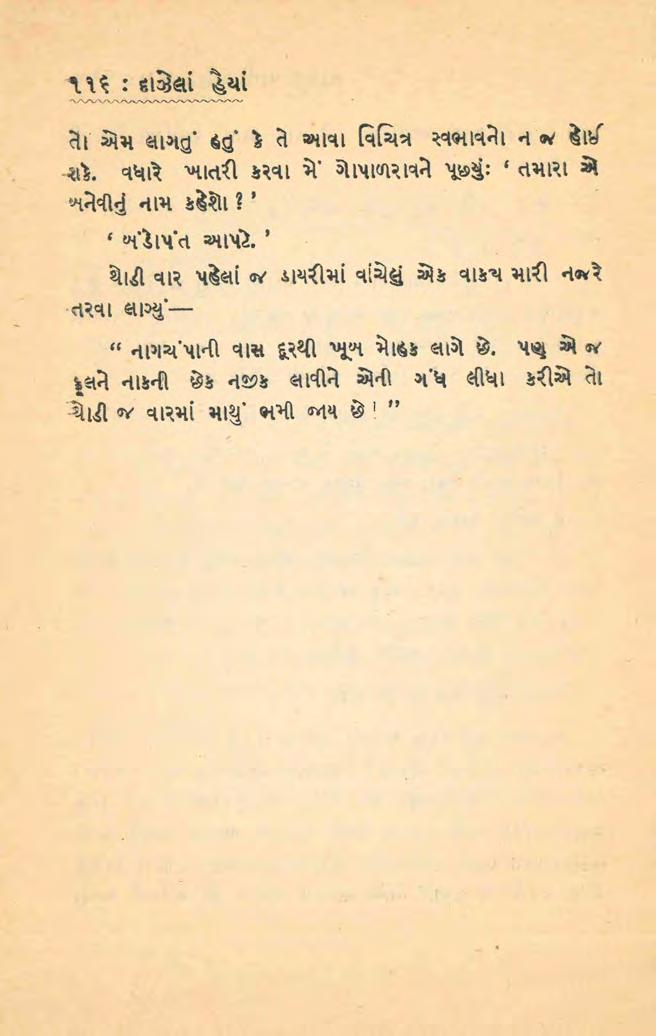 ૧૧૬ : દાઝેલાં હૈયાં
તો એમ લાગતું હતું કે તે આવા વિચિત્ર સ્વભાવનો ન જ હોઈ
શકે. વધારે ખાતરી કરવા મેં ગોપાળરાવને પૂછ્યુંઃ ‘ તમારા એ
બનેવીનું નામ કહેશો ? ’
‘ બંડોપંત આપટે. ’
થોડી વાર પહેલાં જ ડાયરીમાં વાંચેલું એક વાક્ય મારી નજરે
તરવા લાગ્યું—
“ નાગચંપાની વાસ દૂરથી ખૂબ મોહક લાગે છે. પણ એ જ
ફૂલને નાકની છેક નજીક લાવીને એની ગંધ લીધા કરીએ તો
થોડી જ વારમાં માથું ભમી જાય છે ! ”